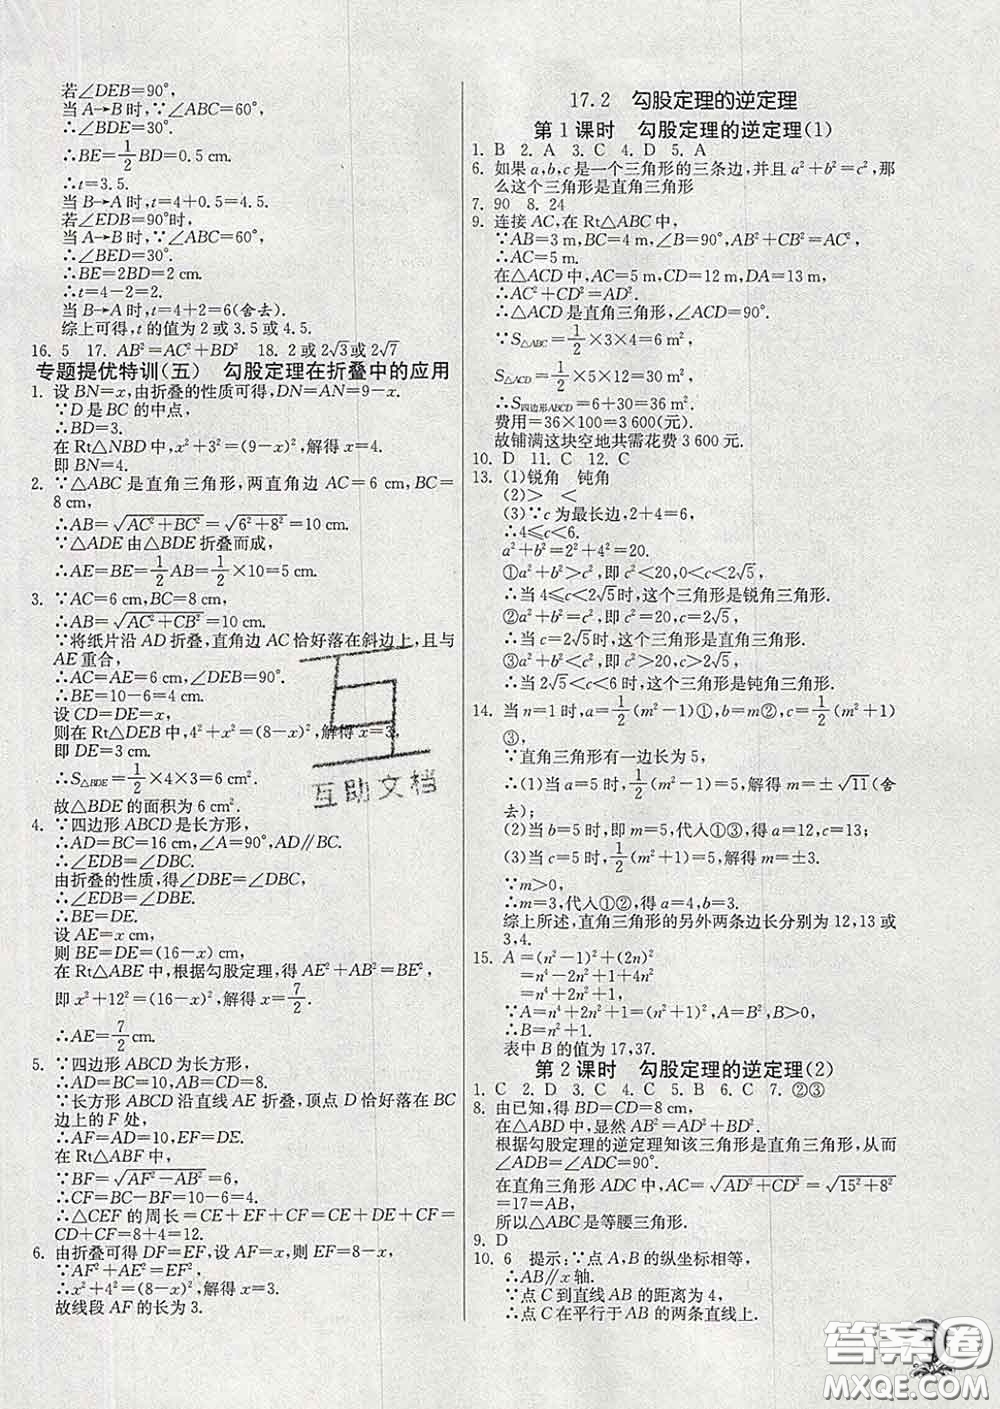 若∠DEB=90°,
当 A→B 时,∵∠ABC=60°,
∴∠BDE=30°.
∴BE=1/2BD=0.5 cm.
∴t=3.5.
当 B→A 时,t=4+0.5=4.5.
若∠EDB=90°时,
当 A→B 时,∵∠ABC=60°,
∴∠BED=30°.
∴BE=2BD=2 cm.
∴t=4-2=2.
当 B→A 时,t=4+2=6(舍去).
综上可得,t 的值为 2 或 3.5 或 4.5.
16. 5 17. AB²=AC²+BD² 18. 2 或 2√3 或 2√7
专题提优特训(五) 勾股定理在折叠中的应用
1. 设 BN=x,由折叠的性质可得,DN=AN=9-x.
∵D 是 BC 的中点,
∴BD=3.
在 Rt△NBD 中,x²+3²=(9-x)²,解得 x=4.
即 BN=4.
2. ∵△ABC 是直角三角形,两直角边 AC=6 cm,BC=
8 cm,
∴AB=√(AC²+BC²)=√(6²+8²)=10 cm.
∵△ADE 由△BDE 折叠而成,
∴AE=BE=1/2AB=1/2×10=5 cm.
3. ∵AC=6 cm,BC=8 cm,
∴AB=√(AC²+CB²)=10 cm.
∵将纸片沿 AD 折叠,直角边 AC 恰好落在斜边上,且与
AE 重合,
∴AC=AE=6 cm,∠DEB=90°.
∴BE=10-6=4 cm.
设 CD=DE=x,
则在 Rt△DEB 中,4²+x²=(8-x)²,解得 x=3,
即 DE=3 cm.
∴S△BDE=1/2×4×3=6 cm².
故△BDE 的面积为 6 cm².
4. ∵四边形 ABCD 是长方形,
∴AD=BC=16 cm,∠A=90°,AD∥BC.
∴∠EDB=∠DBC.
由折叠的性质,得∠DBE=∠DBC,
∴∠EDB=∠DBE.
∴BE=DE.
设 AE=x cm,
则 BE=DE=(16-x) cm,
在 Rt△ABE 中,根据勾股定理,得 AE²+AB²=BE²,
即 x²+12²=(16-x)²,解得 x=7/2.
∴AE=7/2 cm.
5. ∵四边形 ABCD 为长方形,
∴AD=BC=10,AB=CD=8.
∵长方形 ABCD 沿直线 AE 折叠,顶点 D 恰好落在 BC
边上的 F 处,
∴AF=AD=10,EF=DE.
在 Rt△ABF 中,
∵BF=√(AF²-AB²)=6,
∴CF=BC-BF=10-6=4.
∴△CEF 的周长=CE+EF+CF=CE+DE+CF=
CD+CF=8+4=12.
6. 由折叠可得 DF=EF,设 AF=x,则 EF=8-x,
∵AF²+AE²=EF²,
∴x²+4²=(8-x)²,解得 x=3.
故线段 AF 的长为 3.
17.2 勾股定理的逆定理
第 1 课时 勾股定理的逆定理(1)
1. B 2. A 3. C 4. D 5. A
6. 如果 a,b,c 是一个三角形的三条边,并且 a²+b²=c²,那
么这个三角形是直角三角形
7. 90 8. 24
9. 连接 AC,在 Rt△ABC 中,
∵AB=3 m,BC=4 m,∠B=90°,AB²+CB²=AC²,
∴AC=5 m.
在△ACD 中,AC=5 m,CD=12 m,DA=13 m,
∴AC²+CD²=AD².
∴△ACD 是直角三角形,∠ACD=90°.
∵S△ABC=1/2×3×4=6 m²,
S△ACD=1/2×5×12=30 m²,
∴S四边形ABCD=6+30=36 m².
费用=36×100=3600(元).
故铺满这块空地共需花费 3 600 元.
10. D 11. C 12. C
13. (1)锐角 钝角
(2)> <
(3)∵c 为最长边,2+4=6,
∴4≤c<6.
a²+b²=2²+4²=20.
①a²+b²>c²,即 c²<20,0<c<2√5,
∴当 4≤c<2√5时,这个三角形是锐角三角形.
②a²+b²=c²,即 c²=20,c=2√5,
∴当 c=2√5时,这个三角形是直角三角形.
③a²+b²<c²,即 c²>20,c>2√5,
∴当 2√5<c<6 时,这个三角形是钝角三角形.
14. 当 n=1 时,a=1/2(m²-1)①,b=m②,c=1/2(m²+1)
③,
∵直角三角形有一边长为 5,
∴(1)当 a=5 时,1/2(m²-1)=5,解得 m=±√11(舍
去);
(2)当 b=5 时,即 m=5,代入①③,得 a=12,c=13;
(3)当 c=5 时,1/2(m²+1)=5,解得 m=±3.
∵m>0,
∴m=3,代入①②,得 a=4,b=3.
综上所述,直角三角形的另外两条边长分别为 12,13 或
3,4.
15. A=(n²-1)²+(2n)²
=n⁴-2n²+1+4n²
=n⁴+2n²+1,
∵A=n⁴+2n²+1=(n²+1)²,A=B²,B>0,
∴B=n²+1.
表中 B 的值为 17,37.
第 2 课时 勾股定理的逆定理(2)
1. C 2. D 3. C 4. C 5. B 6. C 7. ②③
8. 由已知,得 BD=CD=8 cm,
在△ABD 中,显然 AB²=AD²+BD².
根据勾股定理的逆定理知该三角形是直角三角形,从而
∠ADB=∠ADC=90°.
在直角三角形 ADC 中,AC=√(AD²+CD²)=√(15²+8²)
=17=AB,
所以△ABC 是等腰三角形.
9. D
10. 6 提示:∵点 A,B 的纵坐标相等,
∴AB∥x 轴.
∵点 C 到直线 AB 的距离为 4,
∴点 C 在平行于 AB 的两条直线上.
互助文档
答案圈
MXQE.COM